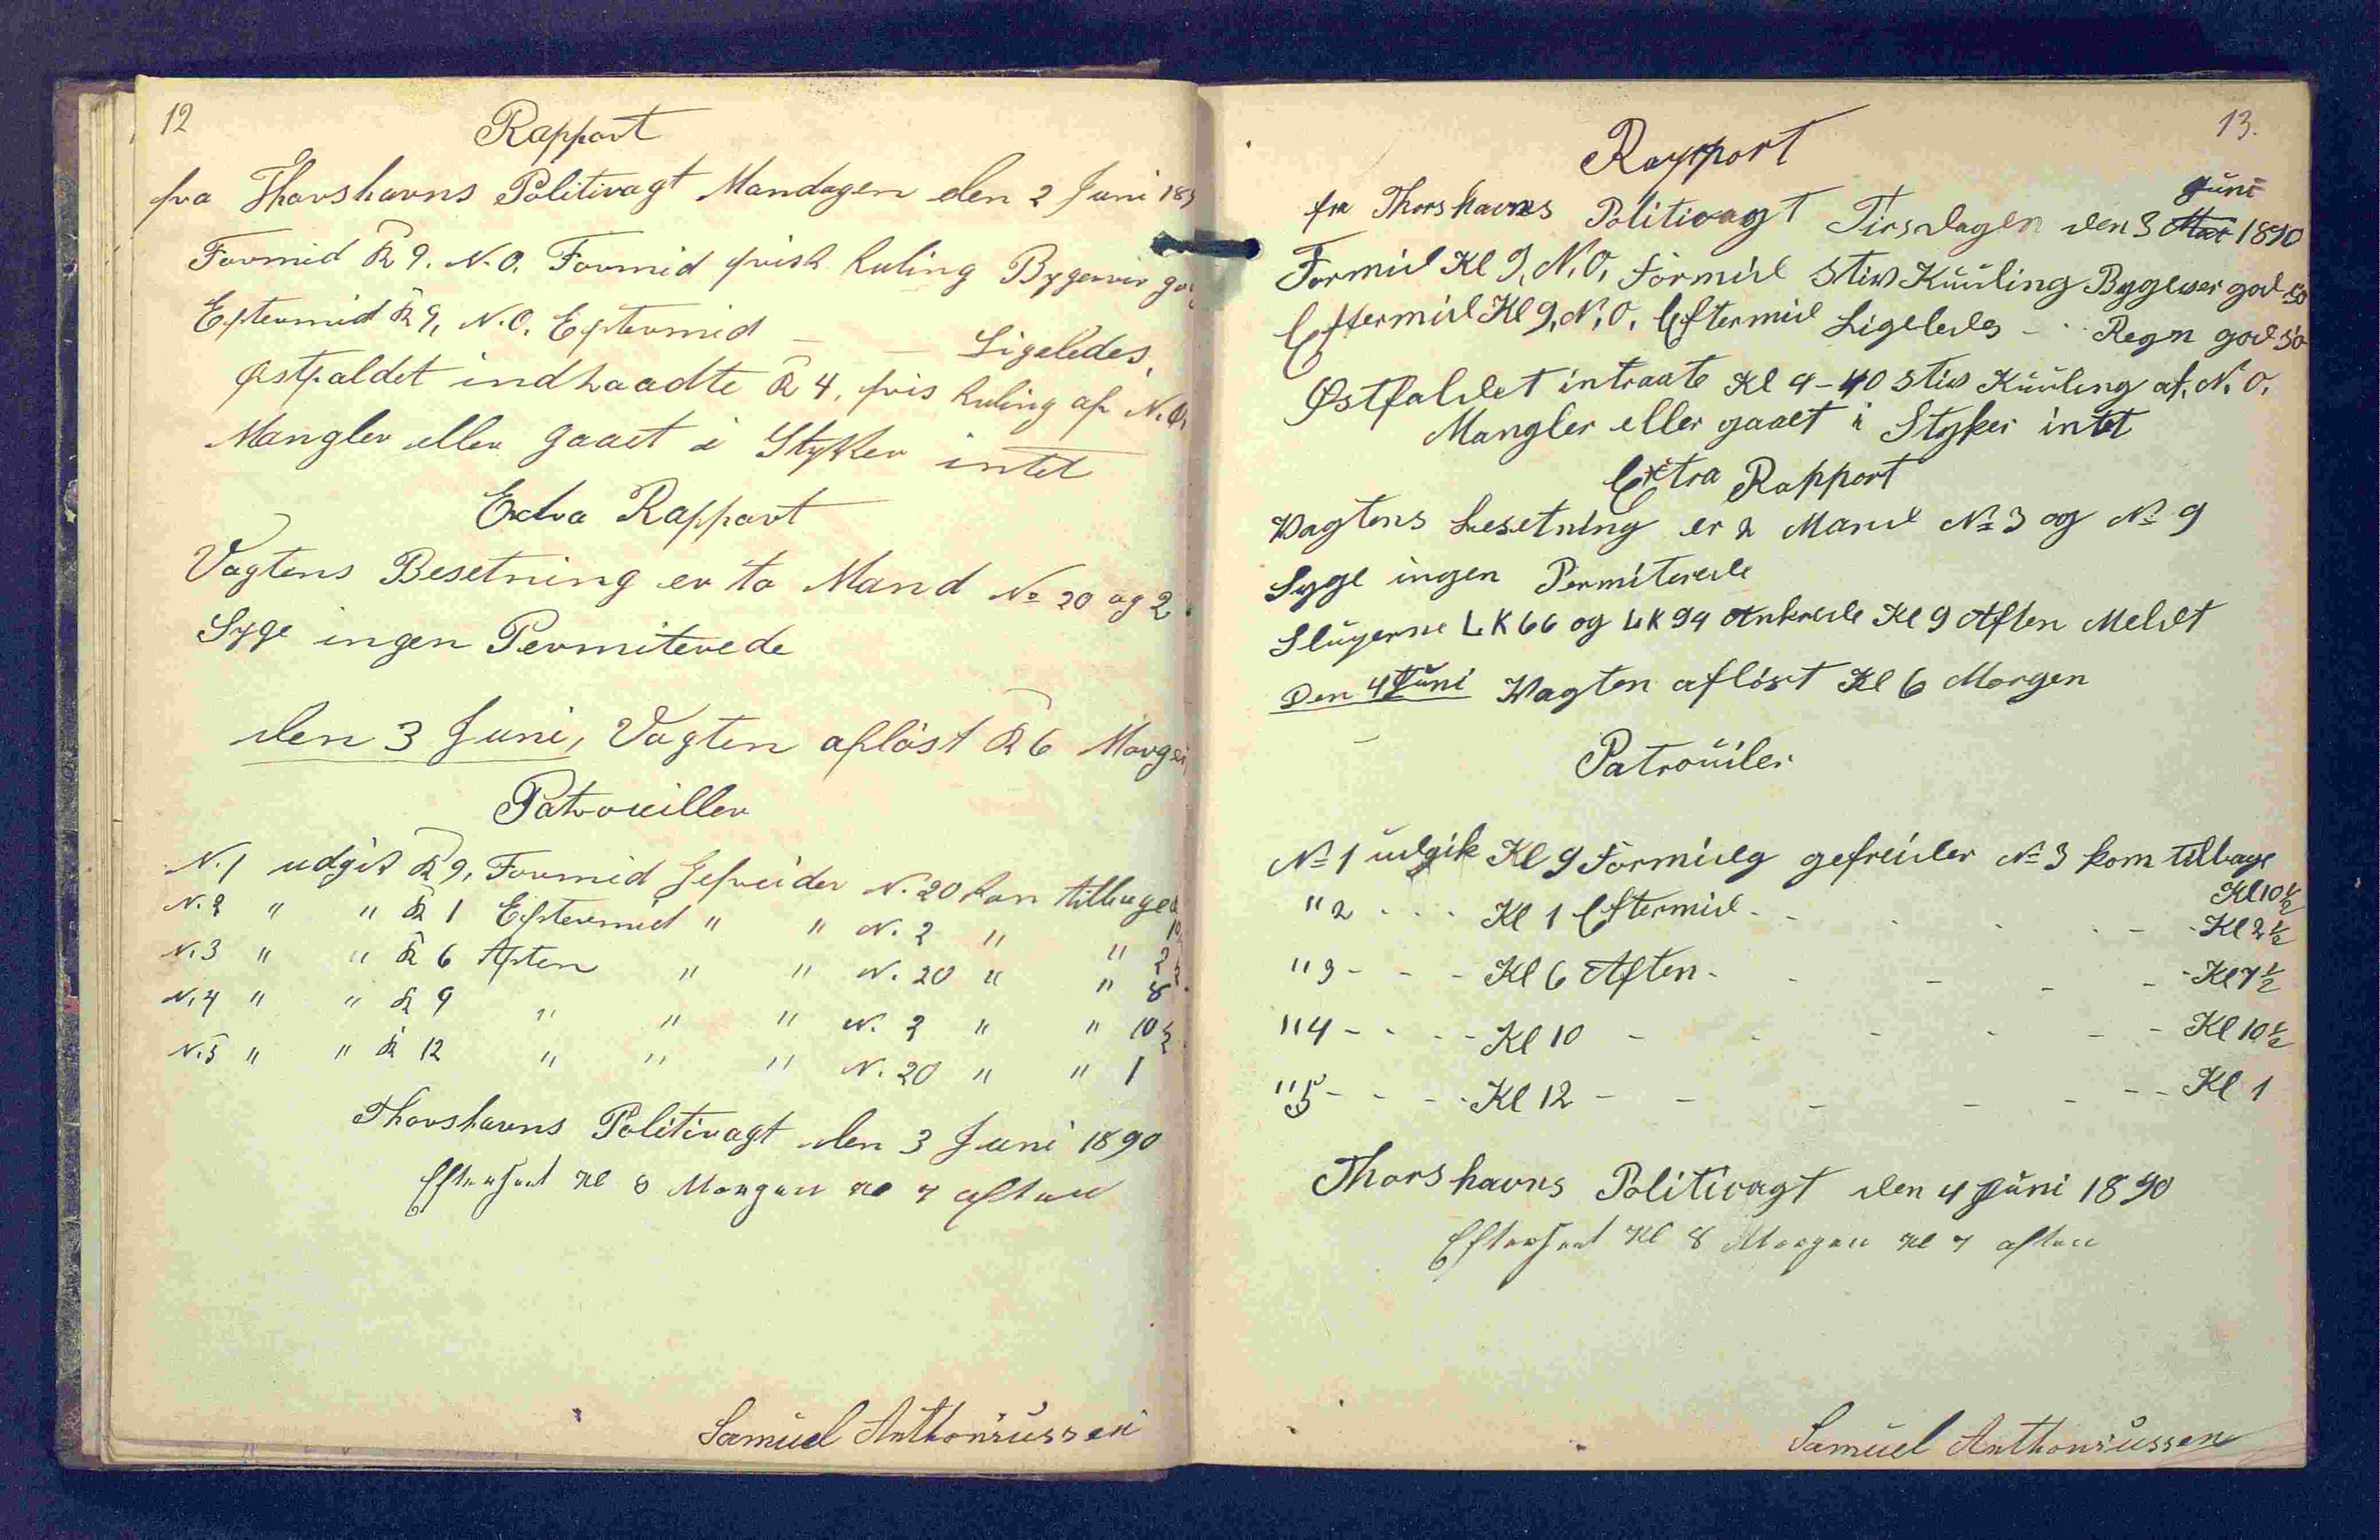 12
Rapport
fra Thorshavns Politivagt Mandagen den 2 Juni 189
Formid Kl 9. N.O. Formid frisk Kuling Bygevir go
Eftermid Kl 9, N.O. Eftermid — — Ligeledes,
Østfaldet indtraadte Kl 4, fris Kuling af N.O,
Mangler eller gaaet i Stykker intet
Extra Rapport
Vagtens Besetning er to Mand No 20 og 2
Syge ingen Permiterede
den 3 Juni, Vagten afløst Kl 6 Morgen
Patrouiller
N.1 udgik Kl 9, Formid Gefreider N. 20 kom tilbage
N.2 " " Kl 1 Eftermid " " N. 2 " " 2½
N.3 " " Kl 6 Aften " " N. 20 " " 8
N.4 " " Kl 9 " " " N. 2 " " 10½
N.5 " " Kl 12 " " " N. 20 " " 1
Thorshavns Politivagt den 3 Juni 1890
Efterseet Kl 8 Morgen Kl 7 aften
Samuel Anthoniussen
13.
Rapport
fra Thorshavns Politivagt Tirsdagen den 3 Juni 1890
Formid Kl 9, N,O, Formid stiv Kuuling Bygever god So
Eftermid Kl 9, N,O, Eftermid Ligeledes - - Regn god So
Østfaldet intraate Kl 4-40 stiv Kuuling af, N,O,
Mangler eller gaaet i Styker intet
Extra Rapport
Vagtens besetning er 2 Mand No 3 og No 9
Syge ingen Permiterede
Slugerne LK 66 og LK 94 Ankrede Kl 9 Aften Meldt
Den 4 Juni Vagten afløst Kl 6 Morgen
Patrouiler
No 1 udgik Kl 9 Formidg gefreider No 3 kom tilbage
Kl 10½
" 2 - - - Kl 1 Eftermid - - - - - - Kl 2½
" 3 - - - Kl 6 Aften - - - - - - Kl 7½
" 4 - - - - Kl 10 - - - - - - Kl 10½
" 5 - - - - Kl 12 - - - - - - - Kl 1
Thorshavns Politivagt den 4 Juni 1890
Efterseet Kl 8 Morgen Kl 7 aften
Samuel Anthoniussen